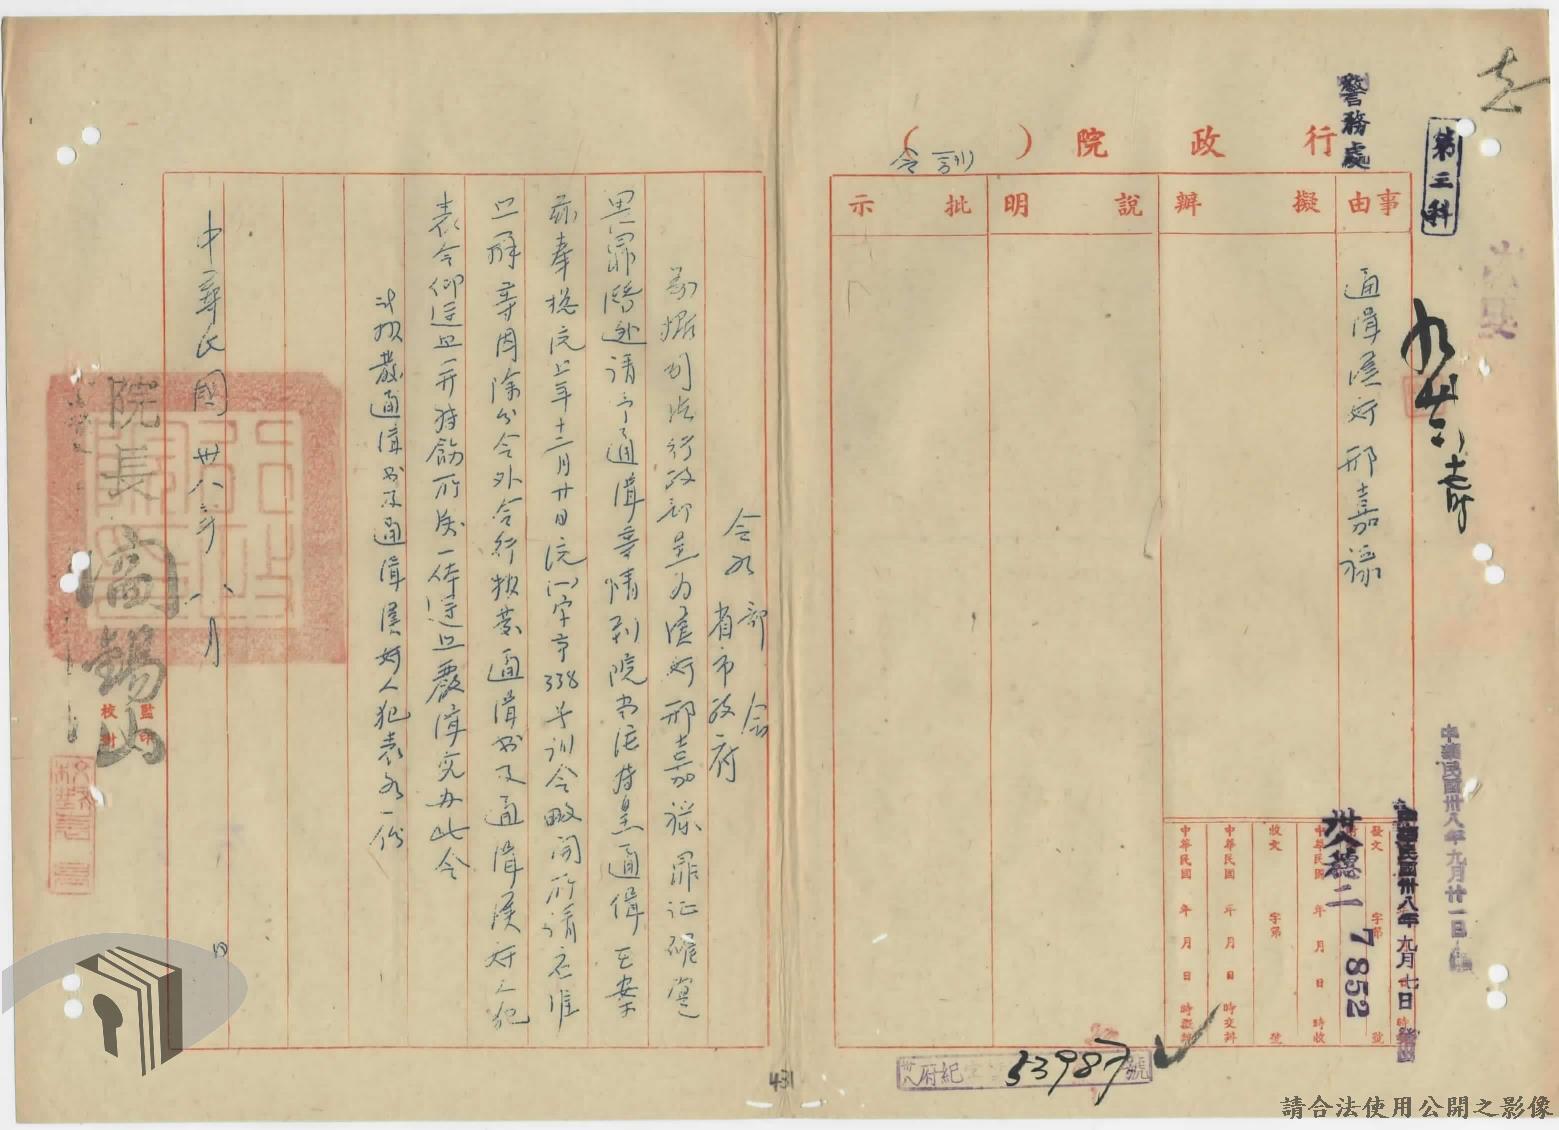 行政院（訓令）
警務處
第三科
事由
擬辦
說明
批示
通緝漢奸邢嘉祿
發文 字第 號
中華民國 年 月 日 時收
收文 字第 號
中華民國 年 月 日 時交辦
中華民國 年 月 日 時擬辦
卅八穗二
7852
中華民國卅八年九月七日
中華民國卅八年九月廿一日
卅八府紀 53987 號
431
令各部會
省市政府
案據司法行政部呈為漢奸邢嘉祿罪証確鑿
畏罪潛逃請予通緝等情到院當經轉呈通緝在案
茲奉總統上年十二月廿日統(一)字第338號訓令略開所請應准
照辦等因除分令外合行抄發通緝書及通緝漢奸人犯
表令仰遵照并轉飭所屬一體遵照嚴緝究办此令
計抄發通緝書及通緝漢奸人犯表各一份
院長閻錫山
中華民國卅八年八月 日
監印
校對
請合法使用公開之影像